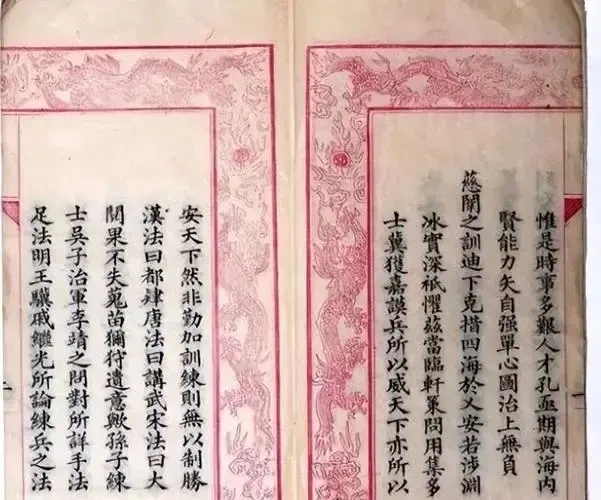 惟是時事多艱人才孔亟期與海内
賢能力矢自强單心圖治上無負
慈闈之訓迪下克措四海於乂安若涉淵
冰實深祇懼兹當臨軒策問用集多
士冀獲嘉謨兵所以威天下亦所以
安天下然非勤加訓練則無以制勝
漢法曰都肄唐法曰講武宋法曰大
閱果不失蒐苗獮狩遺意歟孫子練
士吳子治軍李靖之問對所詳手法
足法明王驥戚繼光所論練兵之法